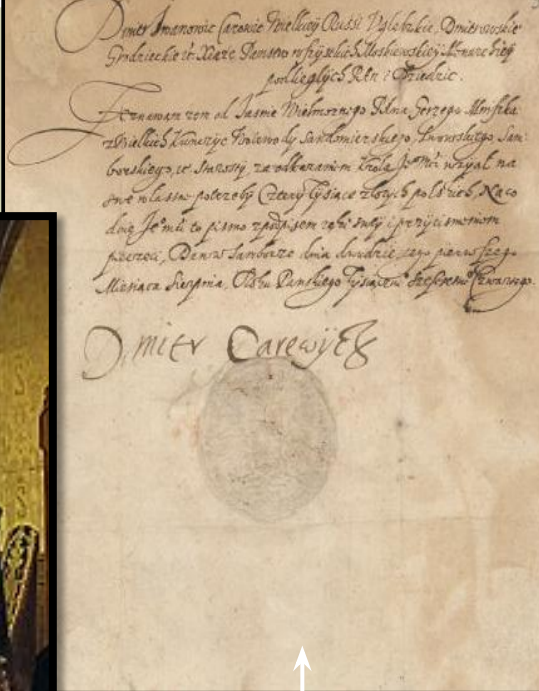 Dmitr Iwanowic Carowic Wielkiey Russi Uglickie, Dmitrowskie
Grodzieckie etc. Xiąże Panstw wszyskich Moskiewskiey Monarchiey
podlieglych Pan i Dziedzic.
Zeznawam zem od Jasnie Wielmoznego Pana Jerzego Mniszka
z Wielkich Konczyc Woiewody Sandomierskiego, Lwowskiego, Sam
borskiego, etc Starosty, za odkazaniem Krola Je° Mci wzyal na
swe wlasne potrzeby Cztery tysiące zlotych polskich, Na co
daię Je° mci to pismo z podpisem ręki swey i przycisnieniem
pieczeci, Dan w Samborze dnia dwudziestego pierwszego
Miesiąca Sierpnia, Roku Panskiego Tysiącne° szescsetne° Czwartego.
Dmitr Carewicz